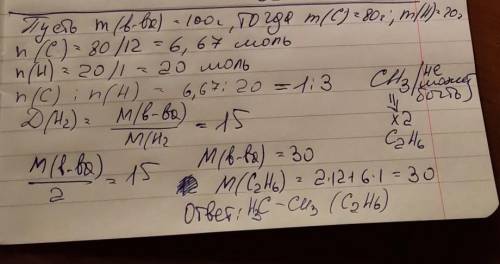 Пусть m(в-ва) = 100г, тогда m(C) = 80г; m(H) = 20г
n(C) = 80/12 = 6,67 моль
n(H) = 20/1 = 20 моль
n(C) : n(H) = 6,67 : 20 = 1:3
CH3 (не может быть)
⇓
x2
C2H6
D(H2) = M(в-ва)/M(H2 = 15
M(в-ва)/2 = 15
M(в-ва) = 30
M(C2H6) = 2·12+6·1 = 30
Ответ: H3C – CH3 (C2H6)